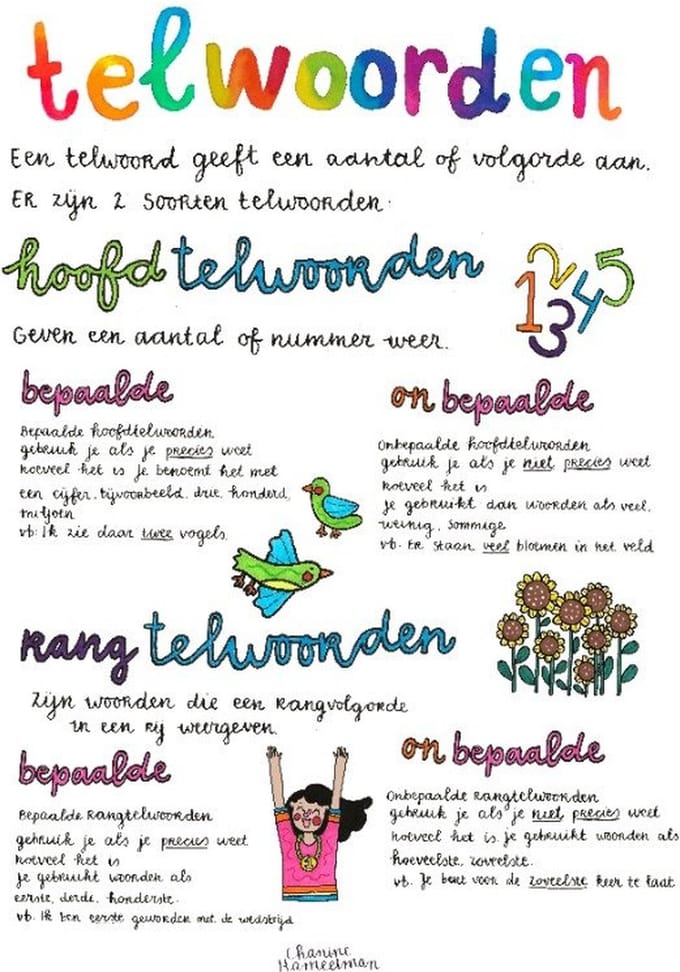 telwoorden
Een telwoord geeft een aantal of volgorde aan.
Er zijn 2 soorten telwoorden.
hoofdtelwoorden
1 2 3 4 5
Geven een aantal of nummer weer.
bepaalde
Bepaalde hoofdtelwoorden
gebruik je als je precies weet
hoeveel het is je benoemt het met
een cijfer. bijvoorbeeld. drie, honderd,
miljoen
vb: Ik zie daar twee vogels
onbepaalde
Onbepaalde hoofdtelwoorden
gebruik je als je niet precies weet
hoeveel het is
je gebruikt dan woorden als veel,
weinig, sommige
vb. Er staan veel bloemen in het veld
rangtelwoorden
Zijn woorden die een rangvolgorde
in een rij weergeven.
bepaalde
Bepaalde rangtelwoorden
gebruik je als je precies weet
hoeveel het is
je gebruikt woorden als
eerste, derde, honderste.
vb. Ik ben eerste geworden met de wedstrijd
onbepaalde
Onbepaalde rangtelwoorden
gebruik je als je niet precies weet
hoeveel het is. je gebruikt woorden als
hoeveelste, zoveelste.
vb. Je bent voor de zoveelste keer te laat
Chanine
Hameetman